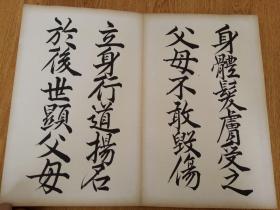 身體髮膚受之
父母不敢毀傷
立身行道揚名
於後世顯父母